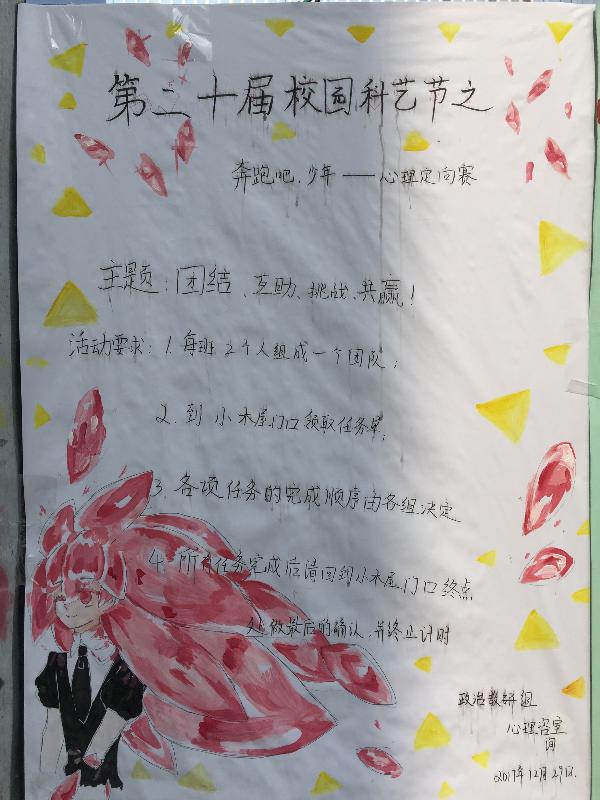 第二十届校园科艺节之
奔跑吧,少年——心理定向赛
主题:团结、互助、挑战、共赢!
活动要求:1.每班2个人组成一个团队;
2.到小木屋门口领取任务单;
3.各项任务的完成顺序由各组决定
4.所有任务完成后请回到小木屋门口终点
处做最后的确认,并终止计时
政治教研组
心理咨室
询
2017年12月29日.